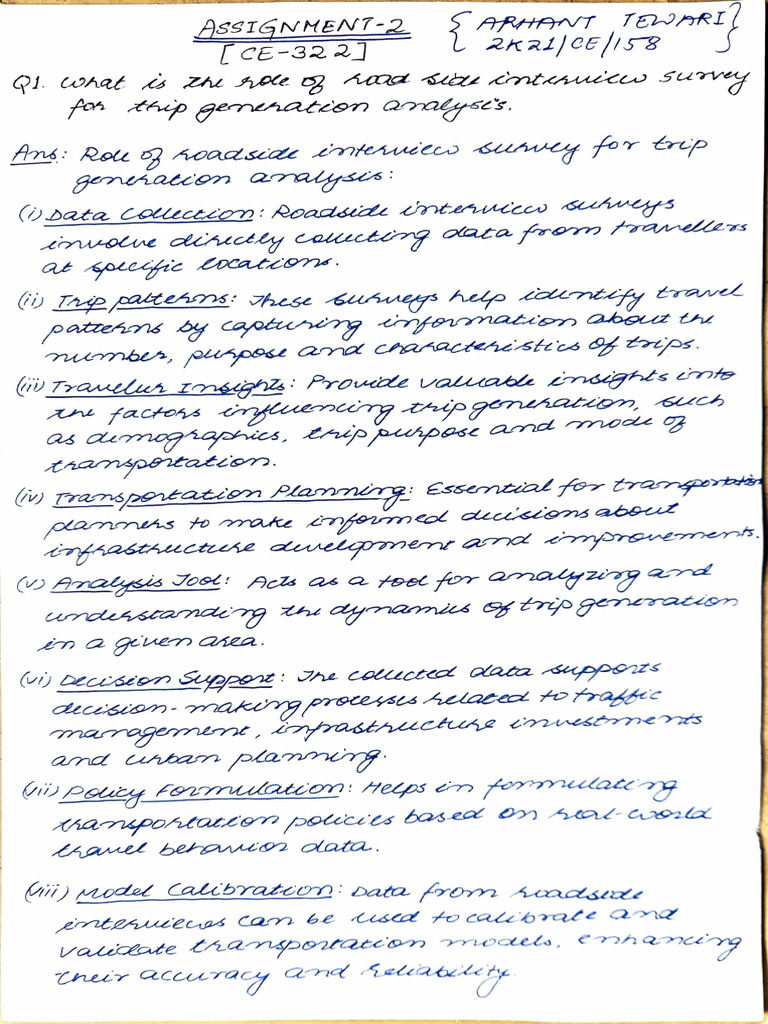 ASSIGNMENT-2 { ARHANT TEWARI
[CE-322] 2K21/CE/158 }
Q1. What is the role of road side interview survey
for trip generation analysis.
Ans: Role of roadside interview survey for trip
generation analysis:
(i) Data Collection: Roadside interview surveys
involve directly collecting data from travellers
at specific locations.
(ii) Trip patterns: These surveys help identify travel
patterns by capturing information about the
number, purpose and characteristics of trips.
(iii) Traveler Insights: Provide valuable insights into
the factors influencing trip generation, such
as demographics, trip purpose and mode of
transportation.
(iv) Transportation Planning: Essential for transportation
planners to make informed decisions about
infrastructure development and improvements.
(v) Analysis Tool: Acts as a tool for analyzing and
understanding the dynamics of trip generation
in a given area.
(vi) Decision Support: The collected data supports
decision-making processes related to traffic
management, infrastructure investments
and urban planning.
(vii) Policy Formulation: Helps in formulating
transportation policies based on real-world
travel behavior data.
(viii) Model Calibration: Data from roadside
interviews can be used to calibrate and
validate transportation models, enhancing
their accuracy and reliability.